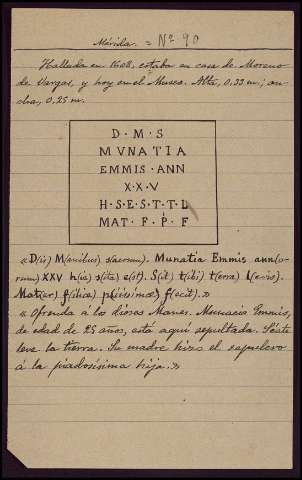 Mérida. = Nº 90
Hallada en 1608, estaba en casa de Moreno
de Vargas, y hoy en el Museo. Alta, 0,33 m.; an-
cha, 0,25 m.
D · M · S
MVNATIA
EMMIS · ANN
X·X·V
H·S·E·S·T·T·L
MAT· F · P · F
«D(is) M(anibus) s(acrum). Munatia Emmis ann(o-
rum) XXV h(ic) s(ita) e(st). S(it) t(ibi) t(erra) l(evis).
Mat(er) f(iliæ) p(iissimæ) f(ecit).»
«Ofrenda a los dioses Manes. Munacia Emmis,
de edad de 25 años, está aquí sepultada. Séate
leve la tierra. Su madre hizo el sepulcro
á la piadosísima hija.»